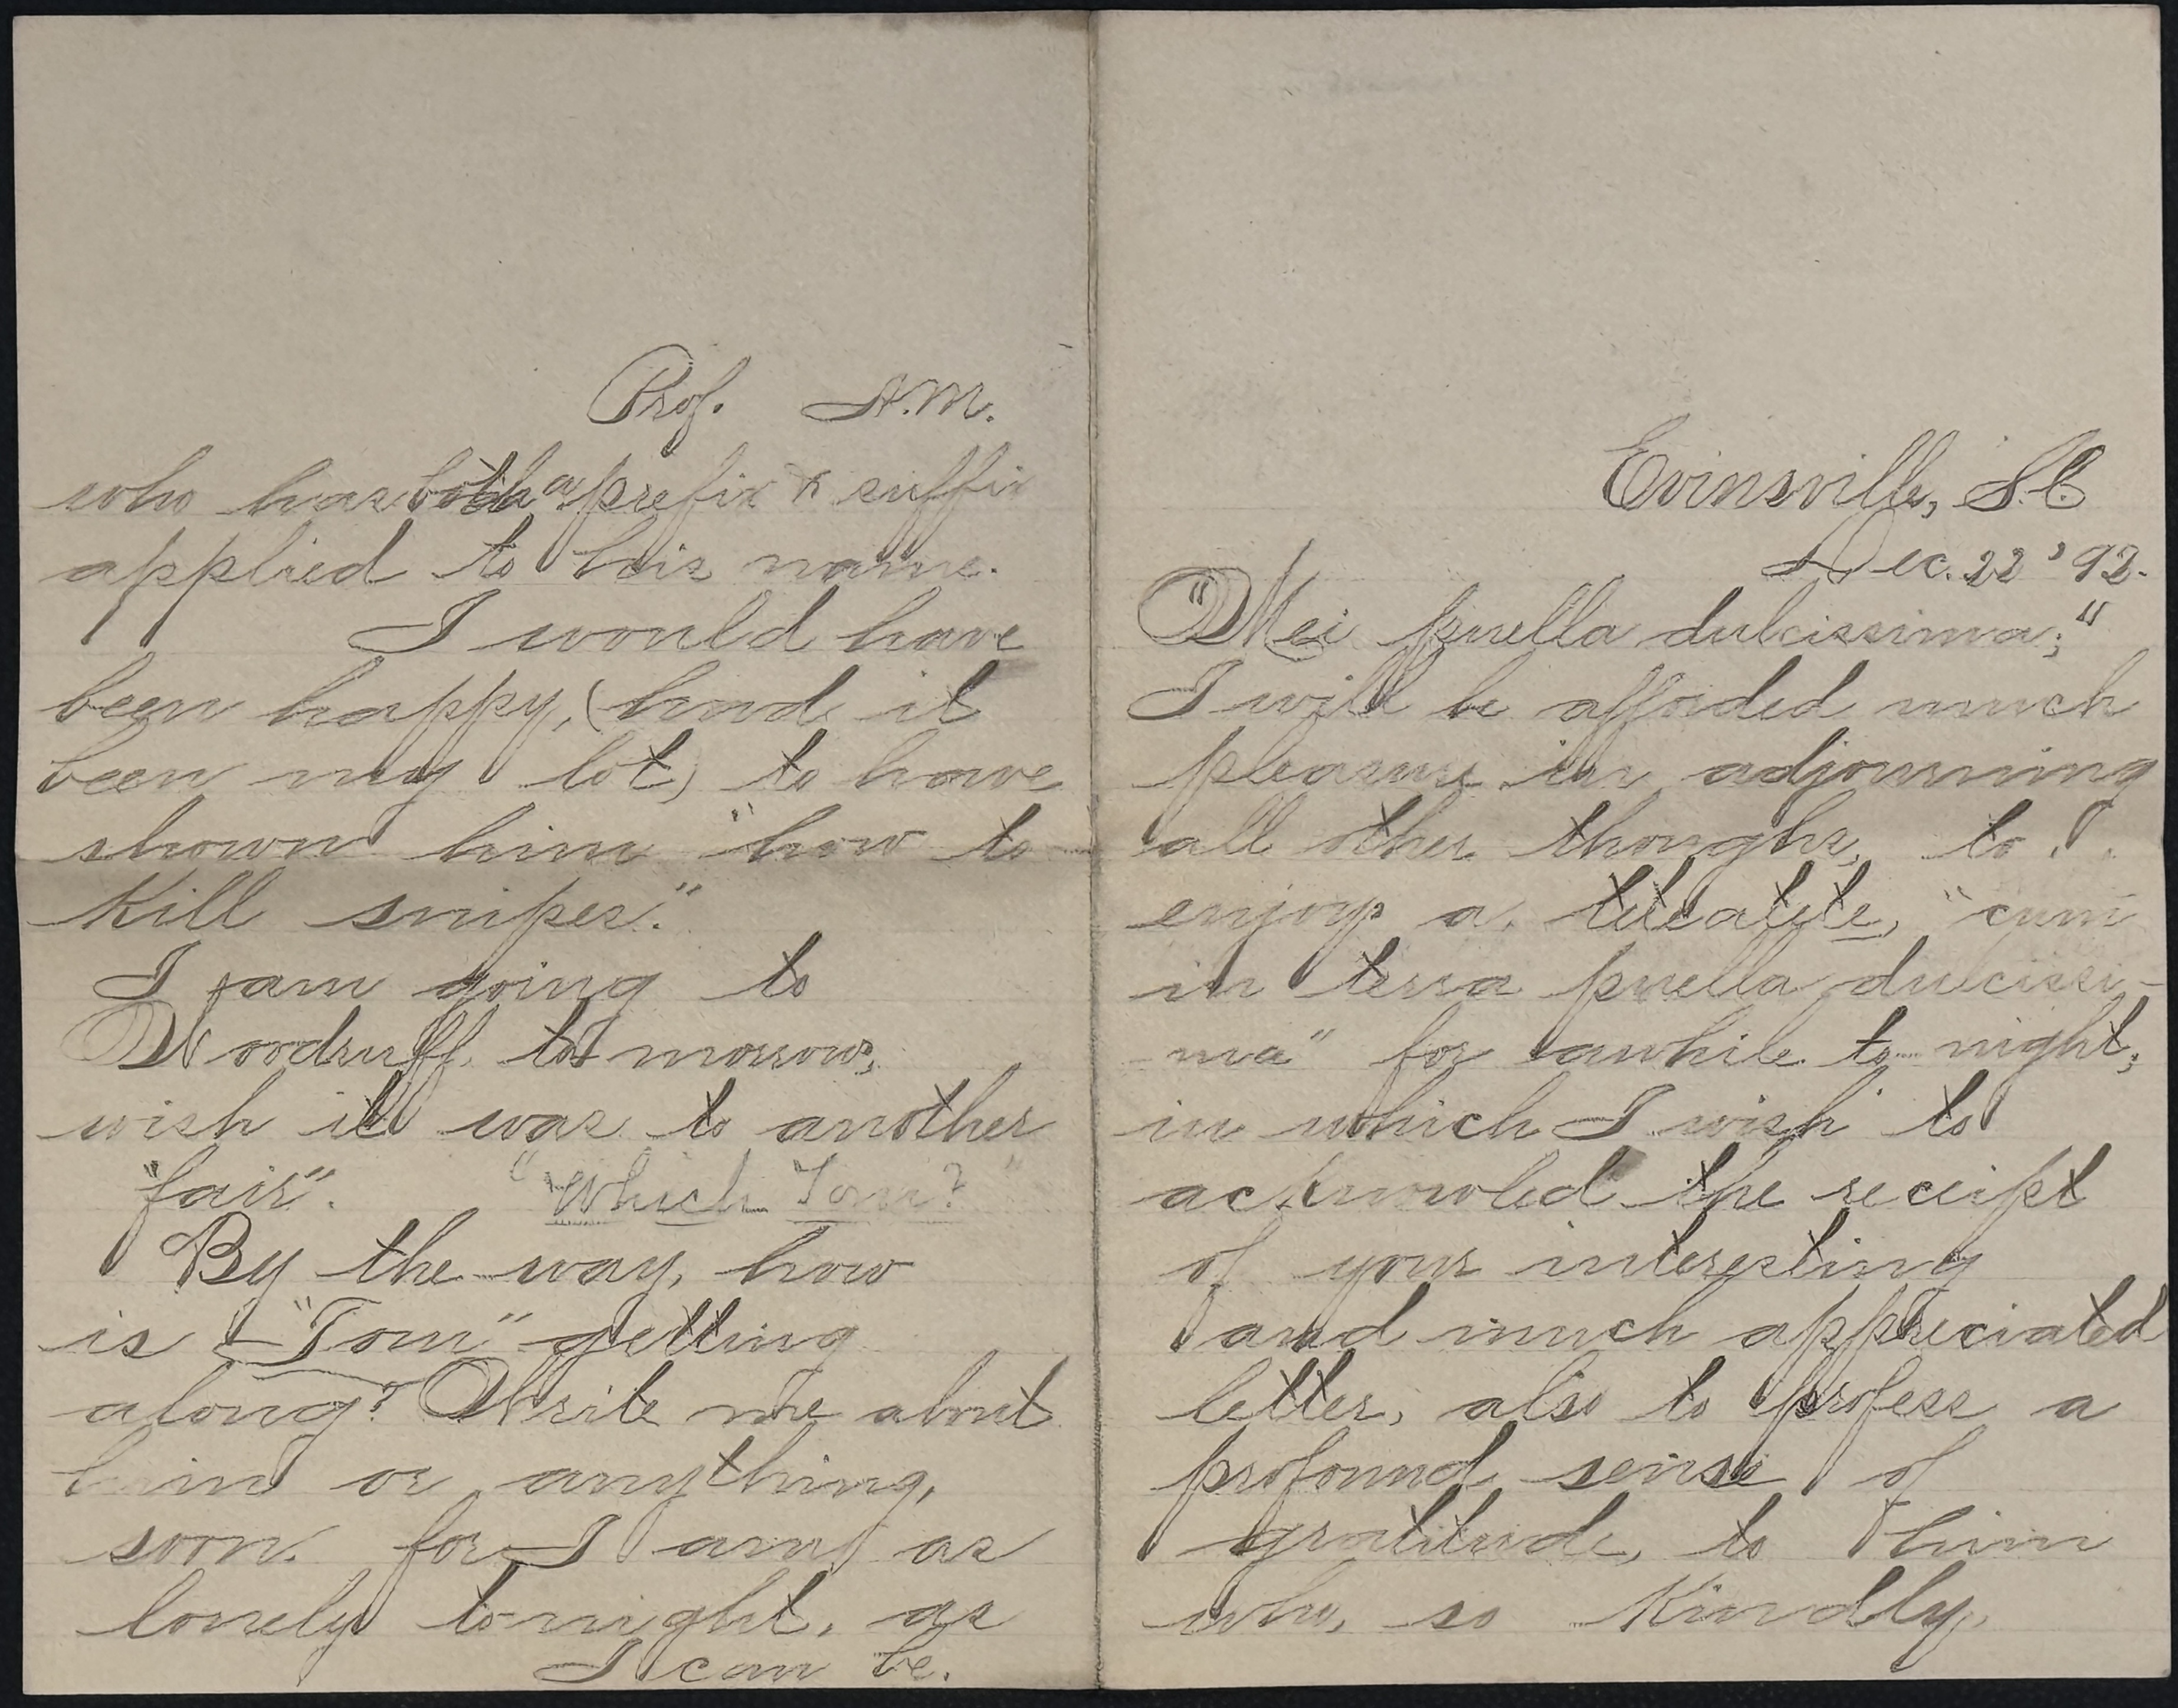 Evinsville, S.C
Dec. 22 '92.
"Mei puella dulcissima;"
I will be afforded much
pleasure in adjourning
all other thoughts, to
enjoy a teteatete, "cum
in terra puella dulcissi-
ma" for awhile to-night,
in which I wish to
acknowled the receipt
of your interesting
and much appreciated
letter, also to profess a
profound sense of
gratitude, to him
who, so Kindly,
Prof. A.M.
who has both a prefix & suffix
applied to his name.
I would have
been happy, (had it
been my lot) to have
shown him "how to
Kill snipes."
I am going to
Woodruff to morrow,
wish it was to another
"fair". "Which Tom?"
By the way, how
is "Tom" getting
along? Write me about
him or anything,
soon. for I am as
lonely to-night, as
I can be.